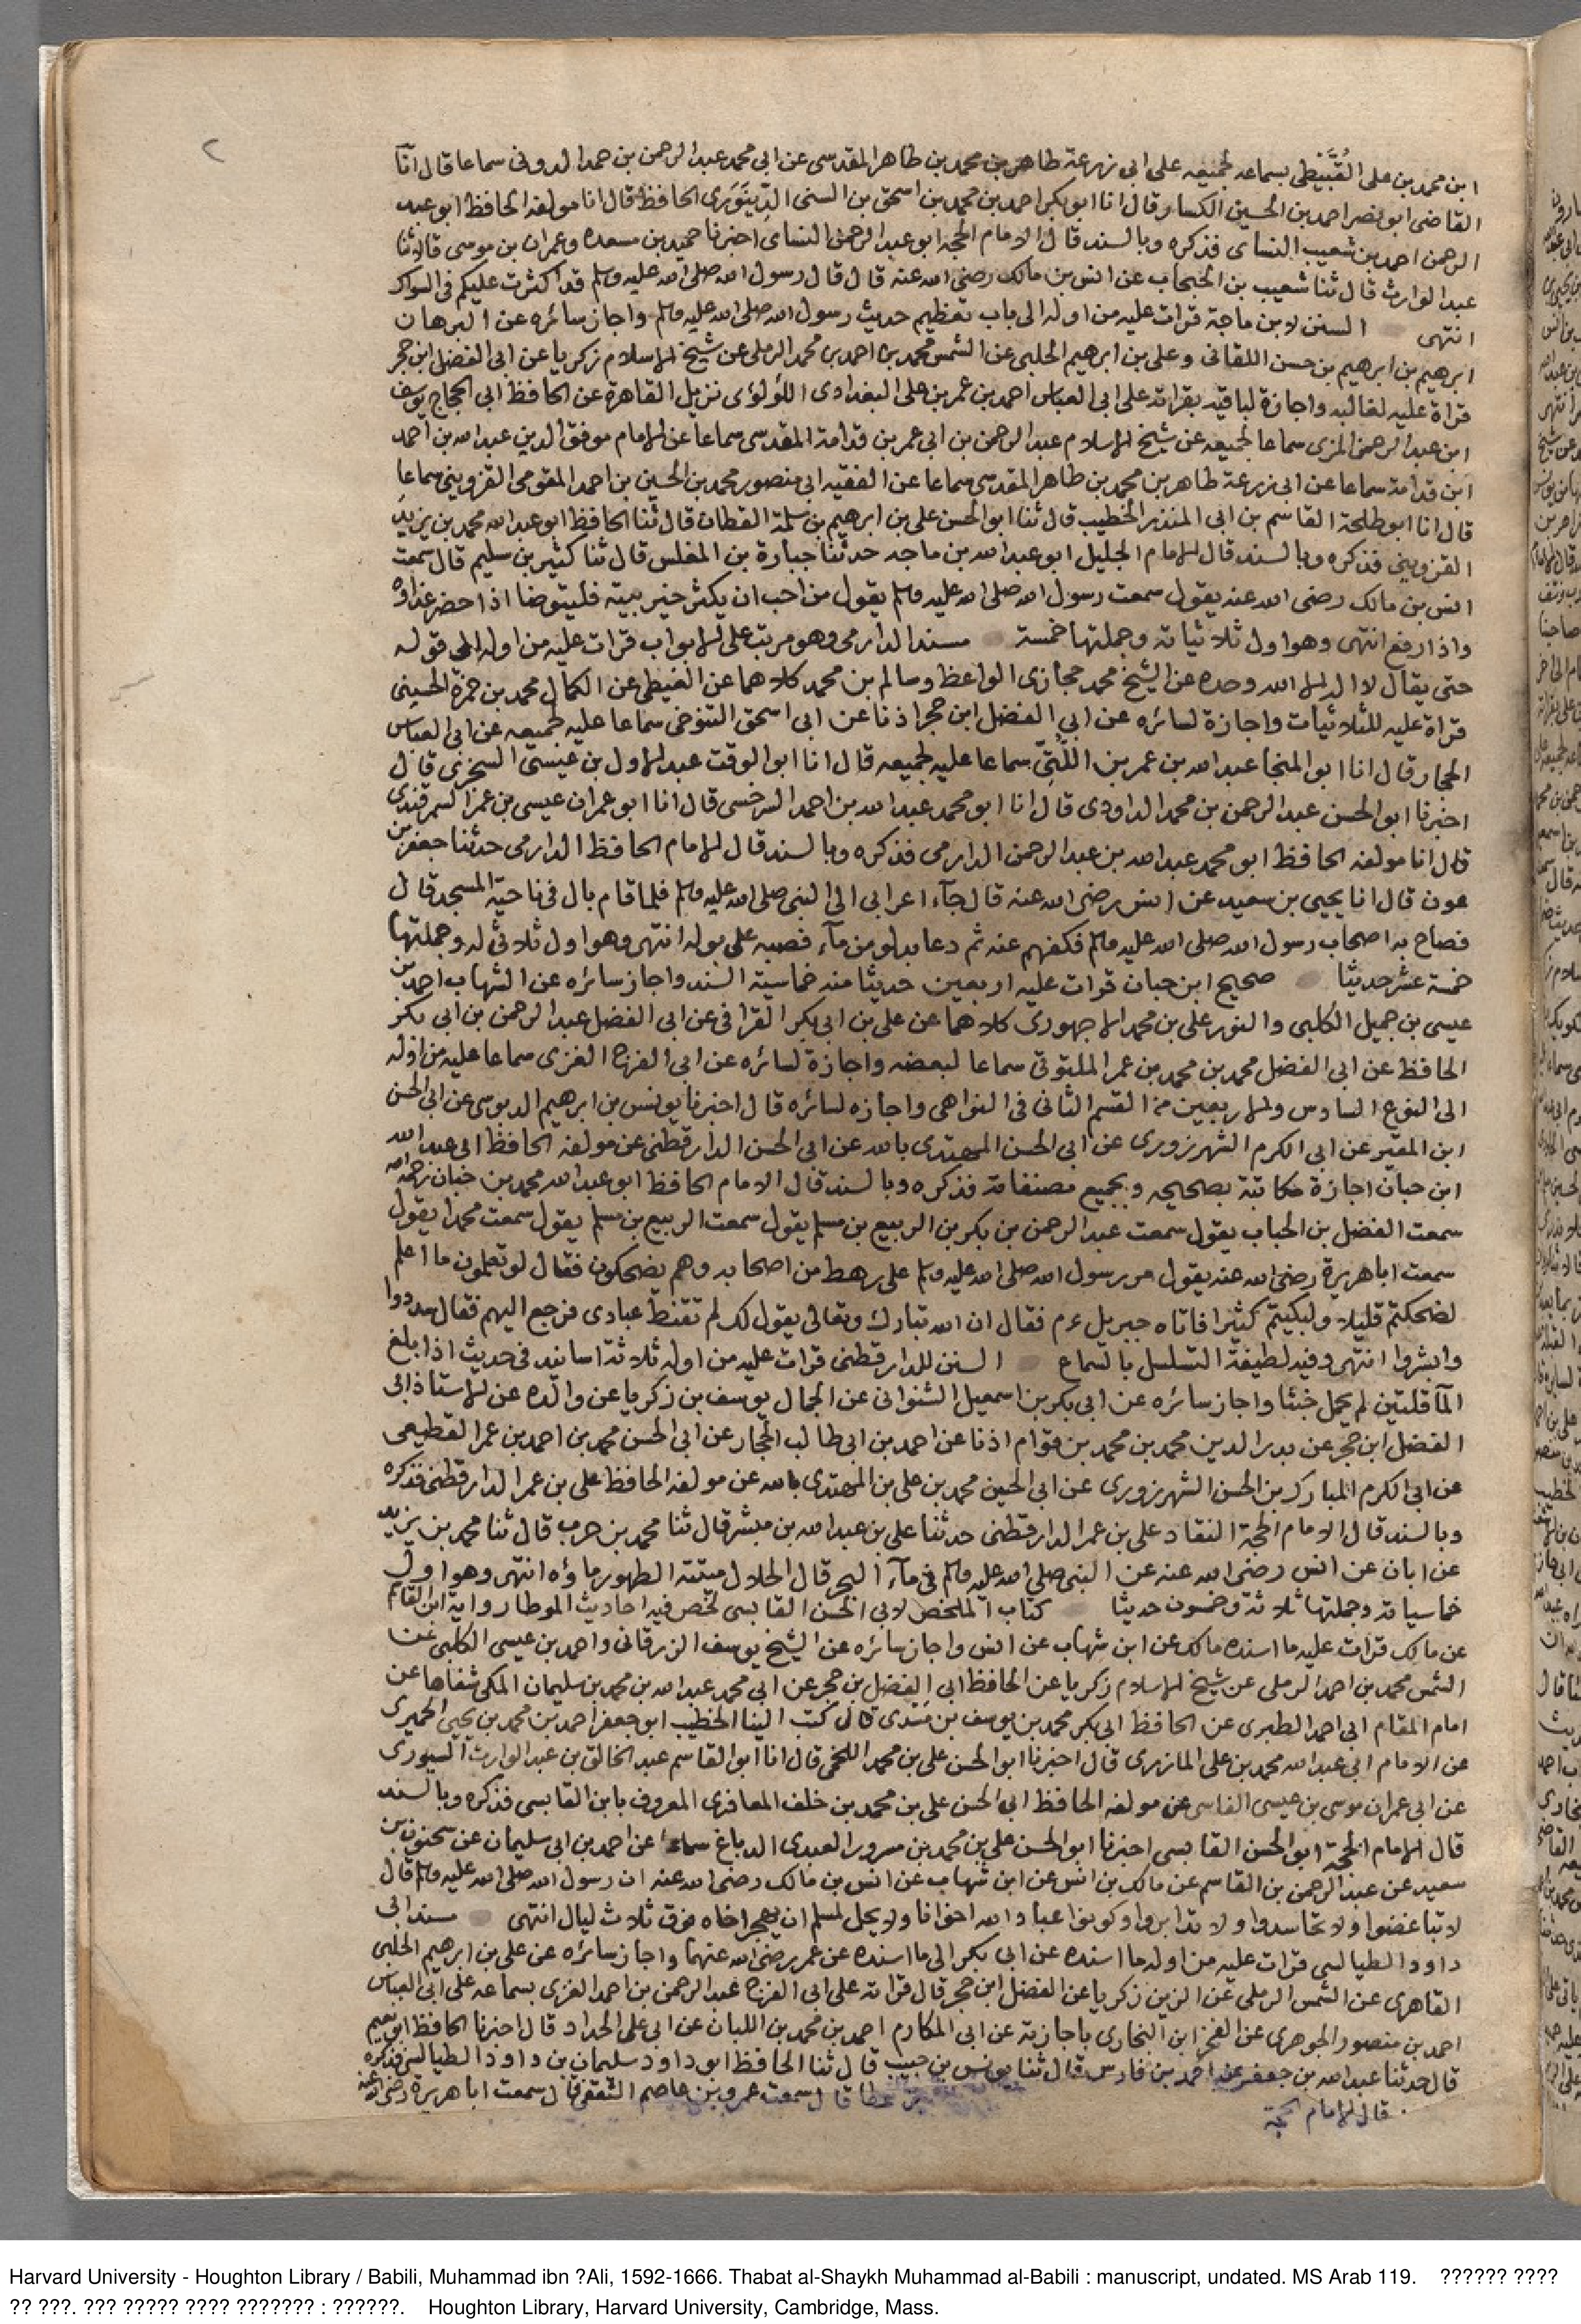 ٢
ابن محمد بن على القُبَّيطى بسماعه لجميعه على ابى زرعة طاهر بن محمد بن طاهر المقدسى عن ابى محمد عبد الرحمن بن حمد الدونى سماعا قال انآ
القاضى ابو نصر احمد بن الحسين الكسار قال انا ابو بكر احمد بن محمد بن اسحق بن السنى الدِّينَوَرى الحافظ قال انا مولفه الحافظ ابو عبد
الرحمن احمد بن شعيب النساى فذكره وبالسند قال الامام الحجه ابو عبد الرحمن النساى اخبرنا حميد بن مسعده وعمران بن موسى قالا ثنا
عبد الوارث قال ثنا شعيب بن الحبحاب عن انس بن مالك رضى الله عنه قال قال رسول الله صلى الله عليه وسلم قد اكثرت عليكم فى السواك
انتهى السنن لابن ماجة قرات عليه من اوله الى باب تعظيم حديث رسول الله صلى الله عليه وسلم واجاز سائره عن البرهان
ابرهيم بن ابرهيم بن حسن اللقانى وعلى بن ابرهيم الحلبى عن الشمس محمد بن احمد بن محمد الرملى عن شيخ الاسلام زكريا عن ابى الفضل ابن حجر
قراة عليه لغالبه واجازة لباقيه بقراته على ابى العباس احمد بن عمر بن على البغدادى اللؤلؤى نزيل القاهرة عن الحافظ ابى الحجاج يوسف
ابن عبد الرحمن المزى سماعا لجميعه عن شيخ الاسلام عبد الرحمن بن ابى عمر بن قدامة المقدسى سماعا عن الامام موفق الدين عبد الله بن احمد
ابن قدامة سماعا عن ابى زرعة طاهر بن محمد بن طاهر المقدسى سماعا عن الفقيه ابى منصور محمد بن الحسين بن احمد المقومى القزوينى سماعا
قال انا ابو طلحة القاسم بن ابى المنذر الخطيب قال ثنا ابو الحسن على بن ابرهيم بن سلمة القطان قال ثنا الحافظ ابو عبد الله محمد بن يزيد
القزوينى فذكره وبالسند قال الامام الجليل ابو عبد الله بن ماجه حدثنا جبارة بن المغلس قال ثنا كثير بن سليم قال سمعت
انس بن مالك رضى الله عنه يقول سمعت رسول الله صلى الله عليه وسلم يقول من احب ان يكثر خير بيته فليتوضا اذا حضر غداوه
واذا رفع انتهى وهو اول ثلاثياته وجملتها خمسة مسند الدارمى وهو مرتب على الابواب قرات عليه من اوله الى قوله
حتى يقال لا اله الا الله وحده عن الشيخ محمد حجازى الواعظ وسالم بن محمد كلاهما عن الغيطى عن الكمال محمد بن حمزة الحسينى
قراة عليه للثلاثيات واجازة لسائره عن ابى الفضل ابن حجر اذنا عن ابى اسحق التنوخى سماعا عليه لجميعه عن ابى العباس
الحجار قال انا ابو المنجا عبد الله بن عمر بن اللَّتِّى سماعا عليه لجميعه قال انا ابو الوقت عبد الاول بن عيسى السجزى قال
اخبرنا ابو الحسن عبد الرحمن بن محمد الداودى قال انا ابو محمد عبد الله بن احمد السرخسى قال انا ابو عمران عيسى بن عمر السمرقندى
قال انا مولفه الحافظ ابو محمد عبد الله بن عبد الرحمن الدارمى فذكره وبالسند قال الامام الحافظ الدارمى حدثنا جعفر بن
عون قال انا يحيى بن سعيد عن انس رضى الله عنه قال جآء اعرابى الى النبى صلى الله عليه وسلم فلما قام بال فى ناحية المسجد قال
فصاح به اصحاب رسول الله صلى الله عليه وسلم فكفهم عنه ثم دعا بدلو من مآء فصبه على بوله انتهى وهو اول ثلاثى له وجملتها
خمسة عشر حديثا صحيح ابن حبان قرات عليه اربعين حديثا منه خماسية السند واجاز سائره عن الشهاب احمد بن
عيسى بن جميل الكلبى والنور على بن محمد الاجهورى كلاهما عن على بن ابى بكر القرافى عن ابى الفضل عبد الرحمن بن ابى بكر
الحافظ عن ابى الفضل محمد بن محمد بن عمر الملتوتى سماعا لبعضه واجازة لسائره عن ابى الفرج الغزى سماعا عليه من اوله
الى النوع السادس والاربعين من القسم الثانى فى النواهى واجازه لسائره قال اخبرنا يونس بن ابرهيم الدبوسى عن ابى الحسن
ابن المقير عن ابى الكرم الشهرزورى عن ابى الحسن المهتدى بالله عن ابى الحسن الدارقطنى عن مولفه الحافظ ابى عبد الله
ابن حبان اجازة مكاتبة بصحيحه وبجميع مصنفاته فذكره وبالسند قال الامام الحافظ ابو عبد الله محمد بن حبان رحمه الله
سمعت الفضل بن الحباب يقول سمعت عبد الرحمن بن بكر بن الربيع بن مسلم يقول سمعت الربيع بن مسلم يقول سمعت محمدا يقول
سمعت ابا هريرة رضى الله عنه يقول مر رسول الله صلى الله عليه وسلم على رهط من اصحابه وهم يضحكون فقال لو تعلمون ما اعلم
لضحكتم قليلا ولبكيتم كثيرا فاتاه جبريل عم فقال ان الله تبارك وتعالى يقول لك لم تقنط عبادى فرجع اليهم فقال سددوا
وابشروا انتهى وفيه لطيفة التسلسل بالسماع السنن للدارقطنى قرات عليه من اوله ثلاثة اسانيد فى حديث اذا بلغ
المآ قلتين لم يحمل خبثا واجاز سائره عن ابى بكر بن اسمعيل الشنوانى عن الجمال يوسف بن زكريا عن والده عن الاستاذ ابى
الفضل ابن حجر عن بدر الدين محمد بن محمد بن قوام اذنا عن احمد بن ابى طالب الحجار عن ابى الحسن محمد بن احمد بن عمر القطيعى
عن ابى الكرم المبارك بن الحسن الشهرزورى عن ابى الحسين محمد بن على بن المهتدى بالله عن مولفه الحافظ على بن عمر الدارقطنى فذكره
وبالسند قال الامام الحجة النقاد على بن عمر الدارقطنى حدثنا على بن عبد الله بن مبشر قال ثنا محمد بن حرب قال ثنا محمد بن يزيد
عن ابان عن انس رضى الله عنه عن النبى صلى الله عليه وسلم فى مآء البحر قال الحلال ميتته الطهور ماؤه انتهى وهو اول
خماسياته وجملتها ثلاثة وخمسون حديثا كتاب الملخص لابى الحسن القابسى لخص فيه احاديث الموطا رواية ابن القاسم
عن مالك قرات عليه ما اسنده مالك عن ابن شهاب عن انس واجاز سائره عن الشيخ يوسف الزرقانى واحمد بن عيسى الكلبى عن
الشمس محمد بن احمد الرملى عن شيخ الاسلام زكريا عن الحافظ ابى الفضل بن حجر عن ابى محمد عبد الله بن محمد بن سليمان المكى شفاها عن
امام المقام ابى احمد الطبرى عن الحافظ ابى بكر محمد بن يوسف بن مسدى قال كتب الينا الخطيب ابو جعفر احمد بن محمد بن يحيى الحميرى
عن الامام ابى عبد الله محمد بن على المازرى قال اخبرنا ابو الحسن على بن محمد اللخمى قال انا ابو القاسم عبد الخالق بن عبد الوارث السيورى
عن ابى عمران موسى بن عيسى الفاسى عن مولفه الحافظ ابى الحسن على بن محمد بن خلف المعافرى المعروف بابن القابسى فذكره وبالسند
قال الامام الحجة ابو الحسن القابسى اخبرنا ابو الحسن على بن محمد بن مسرور العبدى الدباغ سماعا عن احمد بن ابى سليمان عن سحنون بن
سعيد عن عبد الرحمن بن القاسم عن مالك بن انس عن ابن شهاب عن انس بن مالك رضى الله عنه ان رسول الله صلى الله عليه وسلم قال
لا تباغضوا ولا تحاسدوا ولا تدابروا وكونوا عباد الله اخوانا ولا يحل لمسلم ان يهجر اخاه فوق ثلاث ليال انتهى مسند ابى
داود الطيالسى قرات عليه من اوله ما اسنده عن ابى بكر الى ما اسنده عن عمر رضى الله عنهما واجاز سائره عن على بن ابرهيم الحلبى
القاهرى عن الشمس الرملى عن الزين زكريا عن الفضل ابن حجر قال قراته على ابى الفرج عبد الرحمن بن احمد الغزى بسماعه على ابى العباس
احمد بن منصور الجوهرى عن الفخر ابن البخارى باجازته عن ابى المكارم احمد بن محمد بن اللبان عن ابى على الحداد قال اخبرنا الحافظ ابو نعيم
قال حدثنا عبد الله بن جعفر عن احمد بن فارس قال ثنا يونس بن حبيب قال ثنا الحافظ ابو داود سليمان بن داود الطيالسى فذكره
قال الامام الحجة عطا قال سمعت عمرو بن عاصم الثقفى قال سمعت ابا هريرة رضى الله عنه
Harvard University - Houghton Library / Babili, Muhammad ibn ?Ali, 1592-1666. Thabat al-Shaykh Muhammad al-Babili : manuscript, undated. MS Arab 119. ?????? ????
?? ???. ??? ????? ???? ??????? : ??????. Houghton Library, Harvard University, Cambridge, Mass.